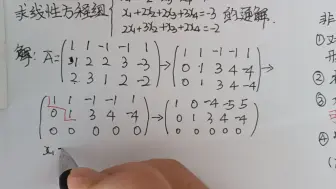 求线性方程组
x₁+2x₂+2x₃+3x₄=-3 的通解.
2x₁+3x₂+x₃+2x₄=-2
解: A=(1 1 -1 -1 1
1 2 2 3 -3
2 3 1 2 -2)→(1 1 -1 -1 1
0 1 3 4 -4
0 1 3 4 -4)
(1 1 -1 -1 1
0 1 3 4 -4
0 0 0 0 0)→(1 0 -4 -5 5
0 1 3 4 -4
0 0 0 0 0)
x₁